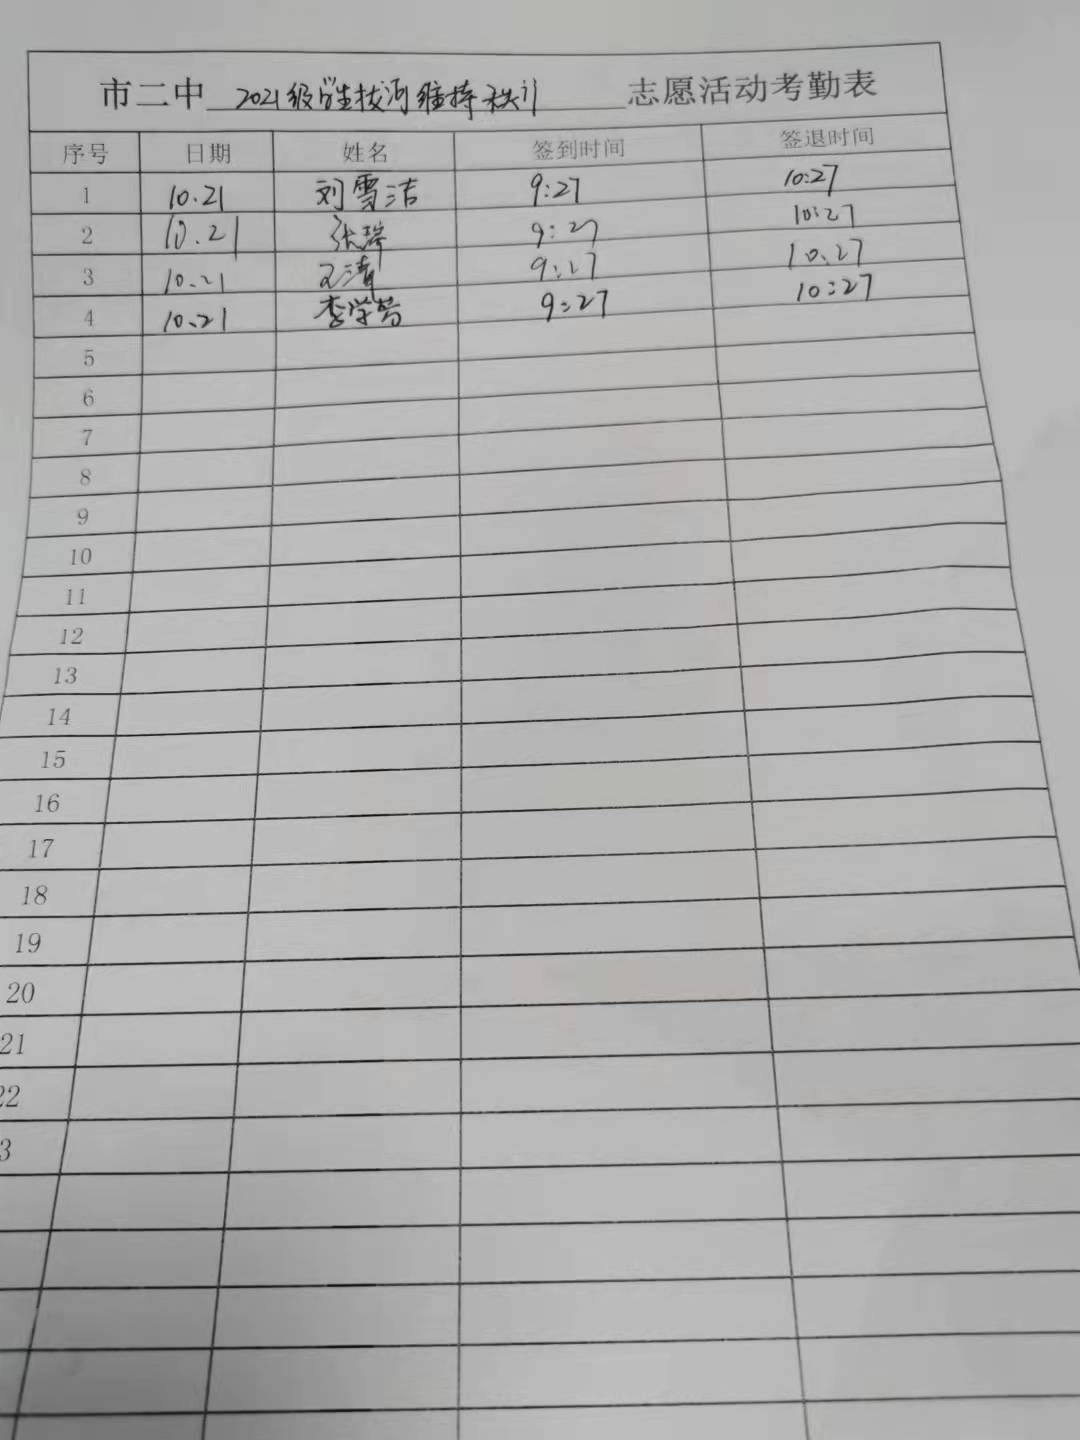 市二中 2021级学生拔河维持秩序 志愿活动考勤表
序号 日期 姓名 签到时间 签退时间
1 10.21 刘雪洁 9:27 10:27
2 10.21 张瑞 9:27 10:27
3 10.21 王清 9:27 10:27
4 10.21 李学 9:27 10:27
5
6
7
8
9
10
11
12
13
14
15
16
17
18
19
20
21
22
3